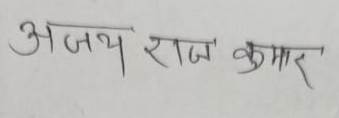 अजय राज कुमार